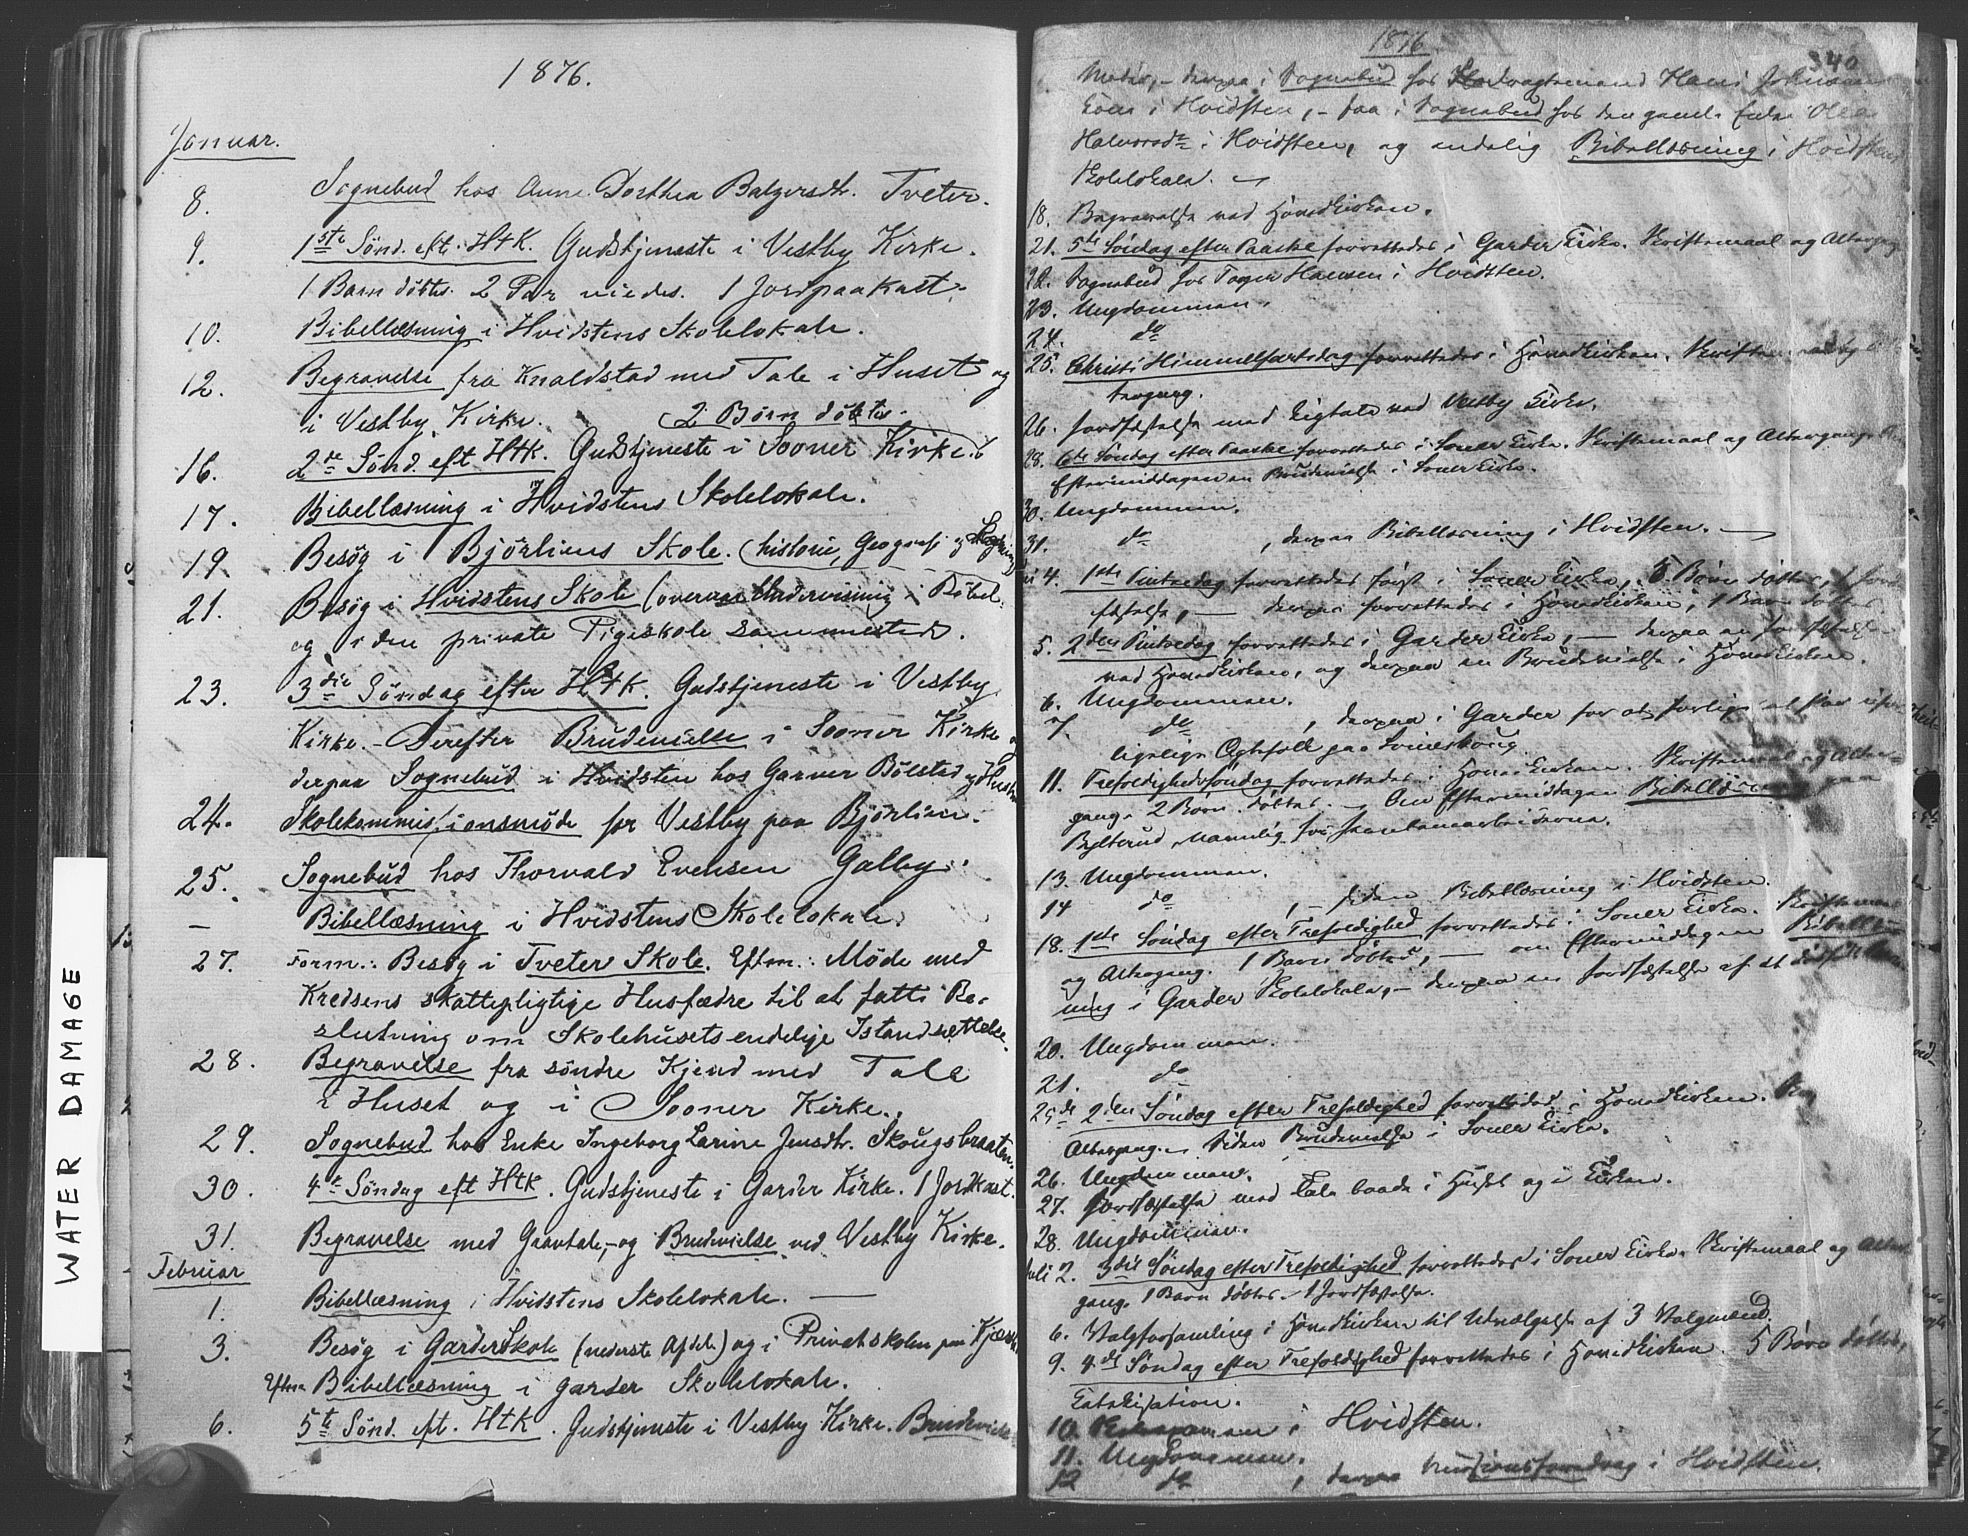 1876.
Januar.
8. Sognebud hos Anne Dorthea Balzersdtr. Tveter.
9. 1ste Sønd. eft. HtK. Gudstjeneste i Vestby Kirke.
1 Barn døbtes. 2 Par viedes. 1 Jordpaakast.
10. Bibellæsning i Hvidstens Skolelokale.
12. Begravelse fra Knaldstad med Tale i Huset og
i Vestby Kirke. 2 Børn døbtes.
16. 2de Sønd. eft HtK. Gudstjeneste i Sooner Kirke.
17. Bibellæsning i Hvidstens Skolelokale.
19. Besøg i Bjørliens Skole. (historie, Geografi og
21. Besøg i Hvidstens Skole (overvar Undervisning i
og i den private Pigeskole sammesteds.
23. 3die Søndag efter HtK. Gudstjeneste i Vestby
Kirke. - Derefter Brudevielse i Sooner Kirke
derpaa Sognebud i Hvidsten hos Garver Bølstad og Hustru
24. Skolekommissionsmøde for Vestby paa Bjørlien.
25. Sognebud hos Thorvald Evensen Galby.
— Bibellæsning i Hvidstens Skolelokale.
27. Form.: Besøg i Tveter Skole. Eftm.: Møde med
Kredsens skattepligtige Husfædre til at fatte Be-
slutning om Skolehusets endelige Istandsættelse.
28. Begravelse fra søndre Kjend med Tale
i Huset og i Sooner Kirke.
29. Sognebud hos Enke Ingeborg Larine Jensdtr. Skougsbraaten.
30. 4de Søndag eft HtK. Gudstjeneste i Garder Kirke. 1 Jordkast.
31. Begravelse med Gravtale, og Brudevielse ved Vestby Kirke.
Februar
1. Bibellæsning i Hvidstens Skolelokale. —
3. Besøg i Garder Skole (nederste Afdele) og i Privatskolen paa
Eftm. Bibellæsning i Garder Skolelokale.
6. 5te Sønd. eft. HtK. Gudstjeneste i Vestby Kirke. Brudevielse
WATER DAMAGE
1876
340
Møder, - derpaa i Sognebud hos Hans Johnsens
Kone i Hvidsten, - saa i Sognebud hos den gamle Enke
Halvorsdtr i Hvidsten, og endelig Bibellæsning i Hvidstens
Skolelokale. —
18. Begravelse ved Hovedkirken.
21. 5te Søndag efter Paaske forrettedes i Garder Kirke. Skriftemaal og Altergang
22. Sognebud hos Hansen i Hvidsten.
23. Ungdommen.
24. do
25. Christi Himmelfartsdag forrettedes i Hovedkirken.
tergang.
26. Jordfæstelse med Ligtale ved Vestby Kirke.
28. 6te Søndag efter Paaske forrettedes i Soner Kirke. Skriftemaal og Altergang.
Eftermiddagen en Brudevielse i Soner Kirke.
30. Ungdommen.
31. do , derpaa Bibellæsning i Hvidsten. —
4. 1ste Pintsedag forrettedes først i Soner Kirke, 5 Børn døbtes, 1 Jord-
fæstelse, — derpaa forrettedes i Hovedkirken, 1 Barn døbtes
5. 2den Pintsedag forrettedes i Garder Kirke, — derpaa en Jordfæstelse
ved Hovedkirken, og derpaa en Brudevielse i Hovedkirken.
6. Ungdommen.
7. do , derpaa i Garder for at forlige et Par
lignlige Ægtefolk paa
11. Trefoldighedssøndag forrettedes i Hovedkirken. Skriftemaal og Alter-
gang. 2 Børn døbtes. - Om Eftermiddagen Bibellæsning paa
Bylterud, navnlig for Jernbanearbeiderne.
13. Ungdommen.
14 do , - siden Bibellæsning i Hvidsten.
18. 1ste Søndag efter Trefoldighed forrettedes i Soner Kirke. Skriftemaal
og Altergang. 1 Barn døbtes, — om Eftermiddagen Bibellæs-
ning i Garder Skolelokale, - derpaa en Jordfæstelse af et
20. Ungdommen.
21. do
25de 2den Søndag efter Trefoldighed forrettedes i Hovedkirken.
Altergang. Siden Brudevielse i Soner Kirke.
26. Ungdommen.
27. Jordfæstelse med Tale baade i Huset og i Kirken.
28. Ungdommen.
Juli 2. 3die Søndag efter Trefoldighed forrettedes i Soner Kirke. Skriftemaal og Alter-
gang. 1 Barn døbtes. 1 Jordfæstelse.
6. Valgforsamling i Hovedkirken til Udvælgelse af 3 Valgmænd.
9. 4de Søndag efter Trefoldighed forrettedes i Hovedkirken. 5 Børn døbtes,
Katekisation.
10. i Hvidsten.
11. Ungdommen.
12 do , derpaa Missionsforedrag i Hvidsten.